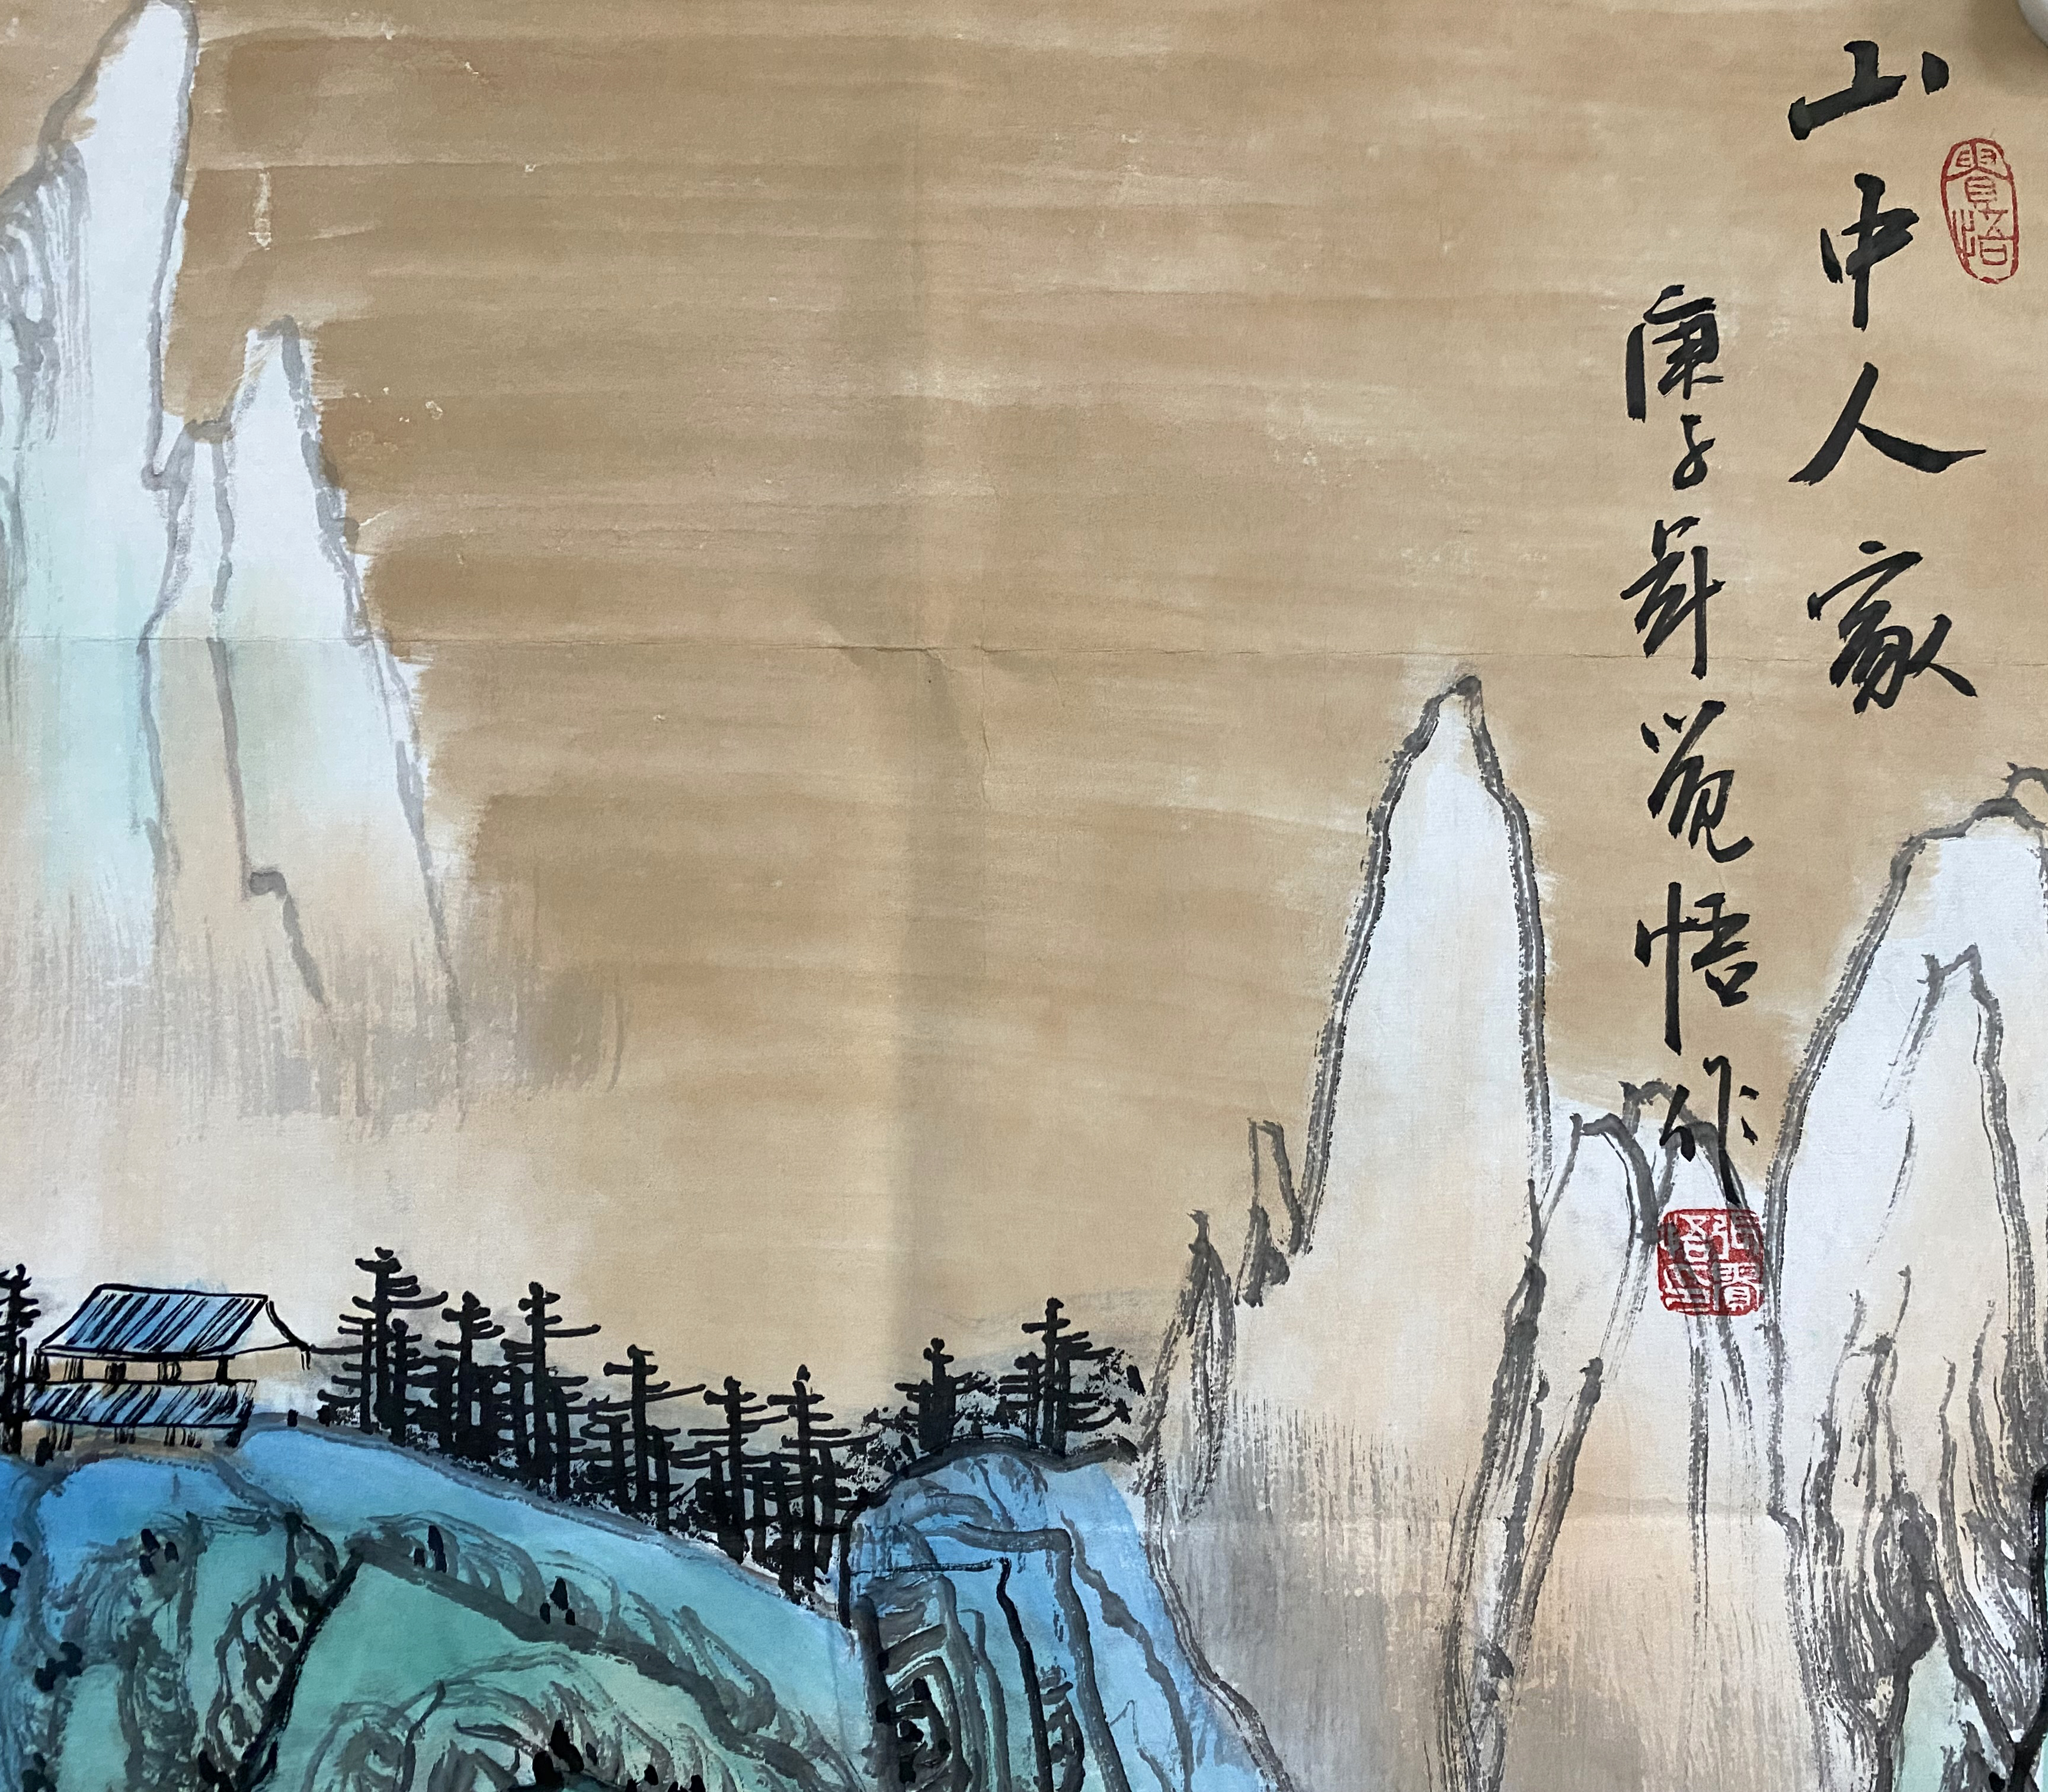 山中人家
庚子年觉悟作
覺悟